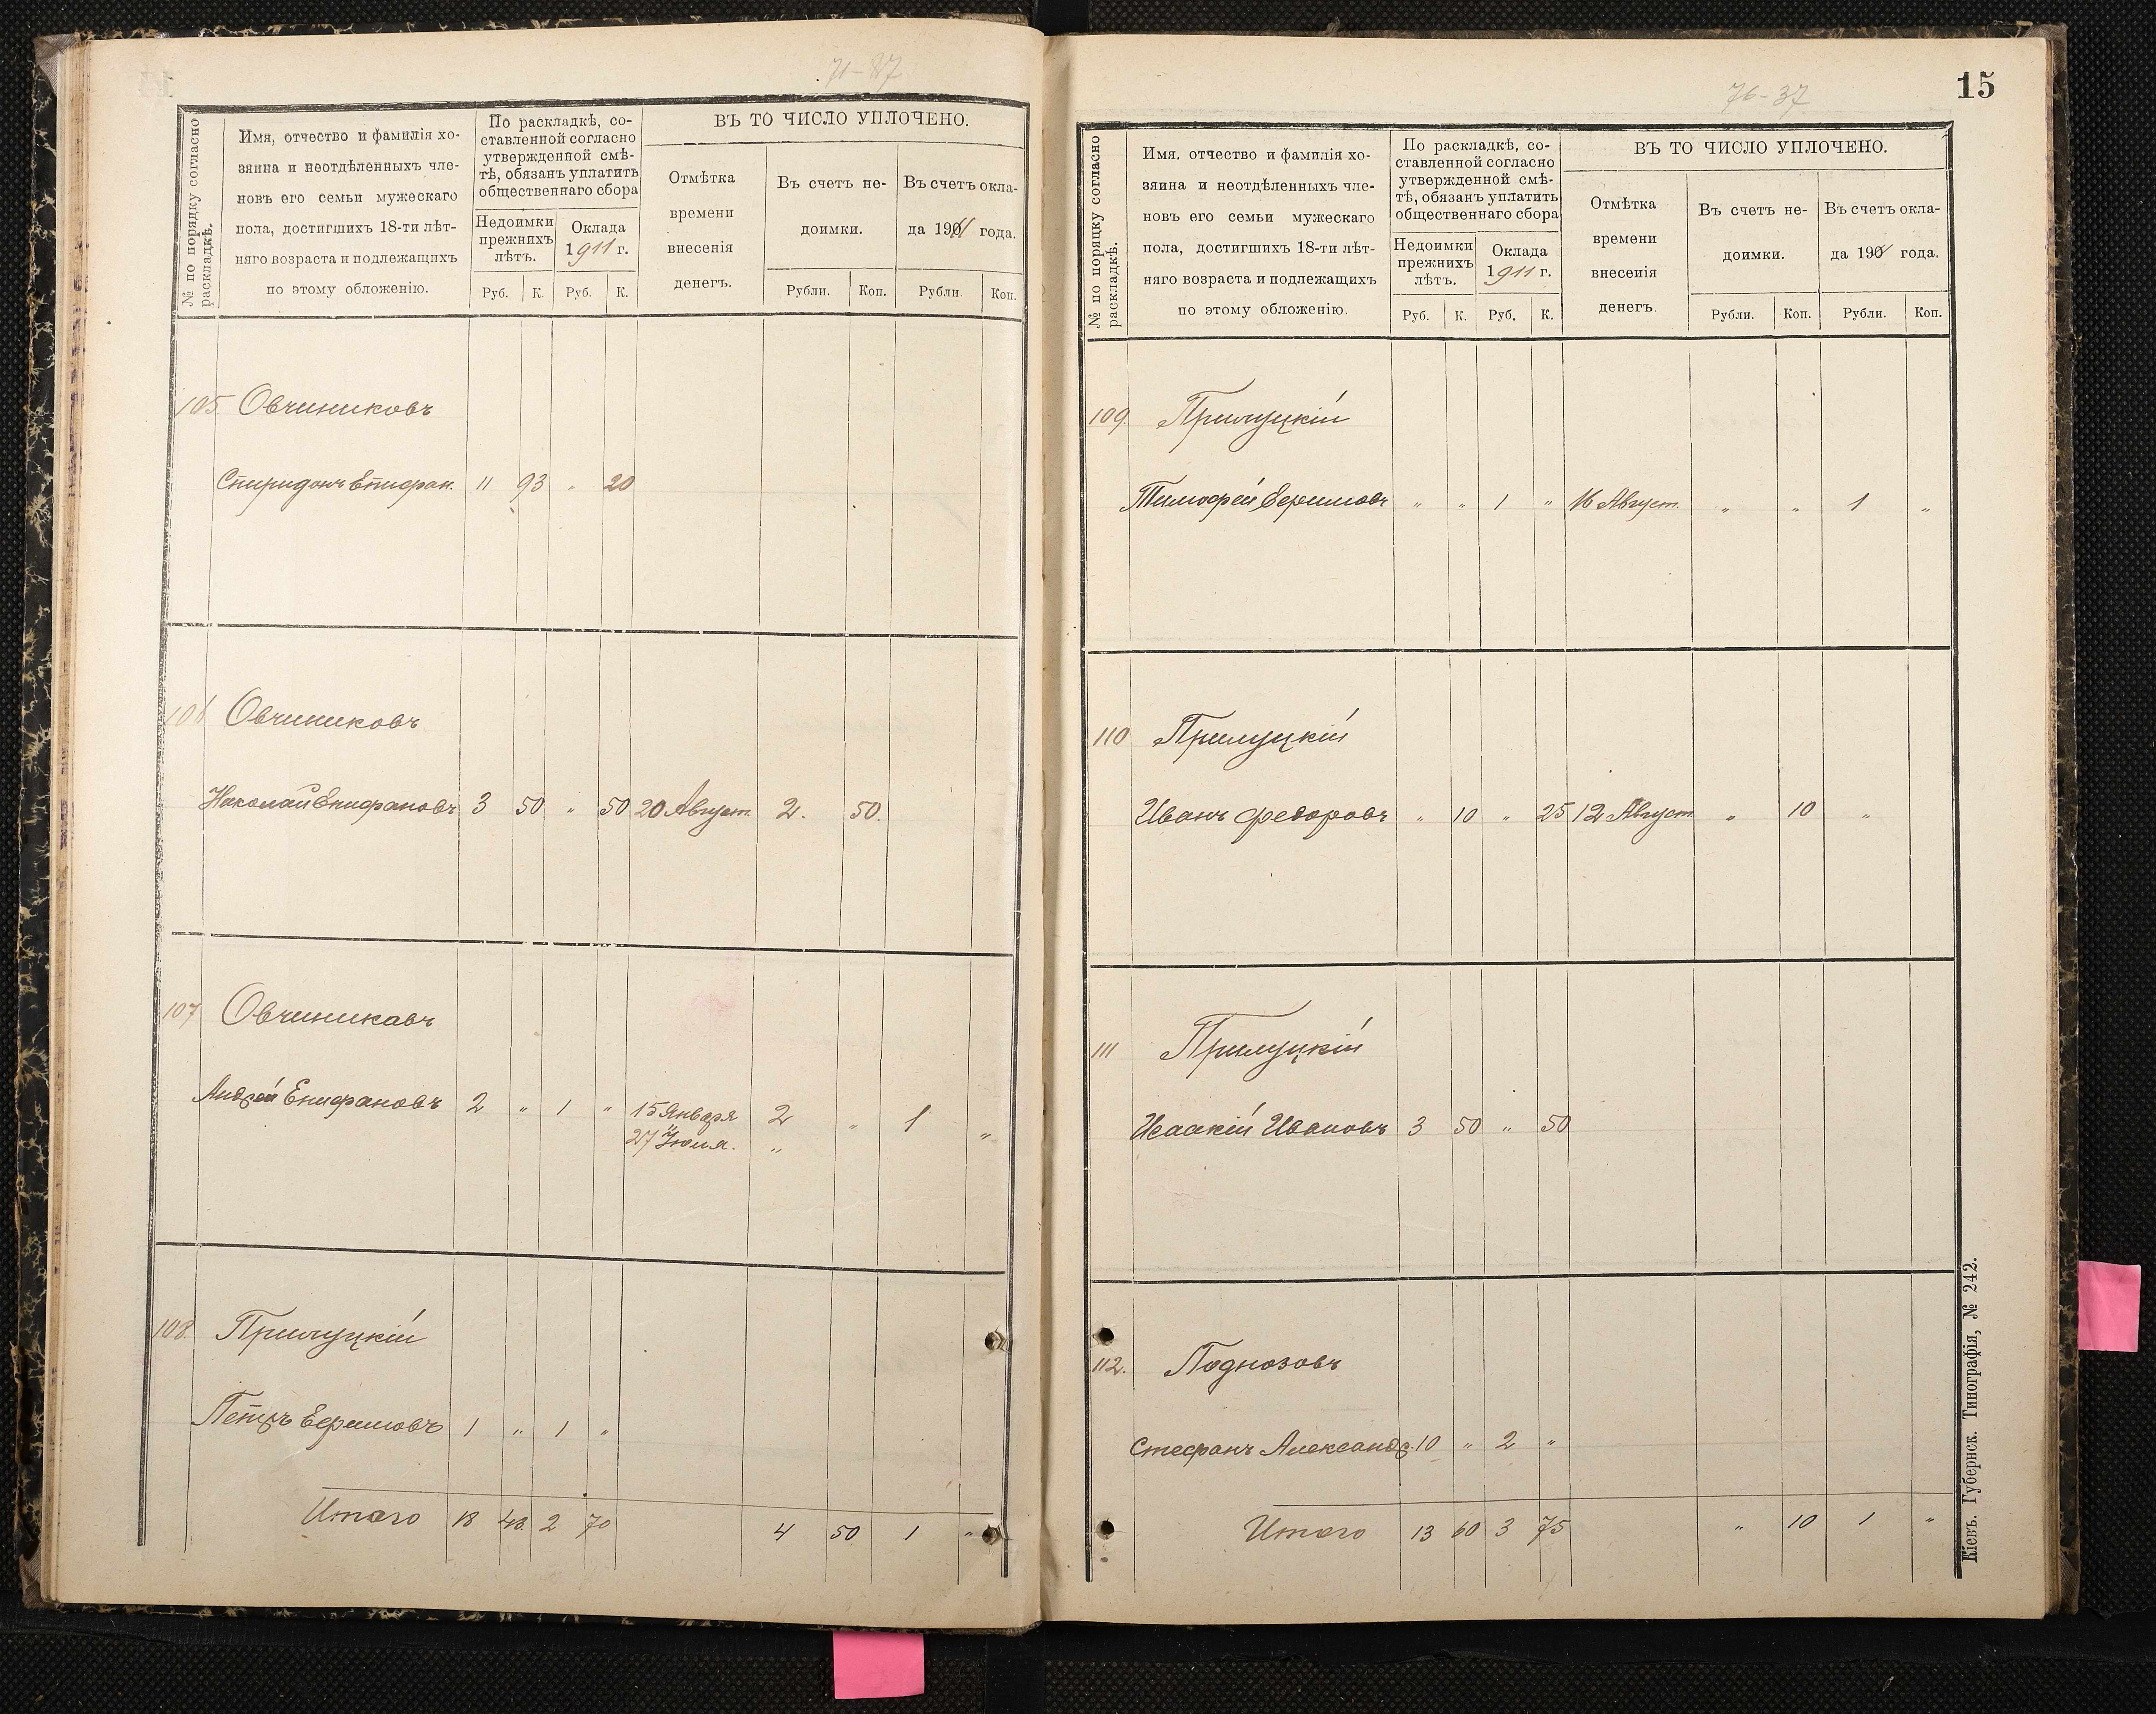 71-87
№ по порядку согласно раскладкѣ.
Имя, отчество и фамилія хо-
зяина и неотдѣленныхъ чле-
новъ его семьи мужескаго
пола, достигшихъ 18-ти лѣт-
няго возраста и подлежащихъ
по этому обложенію.
По раскладкѣ, со-
ставленной согласно
утвержденной смѣ-
тѣ, обязанъ уплатить
общественнаго сбора
Недоимки
прежнихъ
лѣтъ.
Оклада
1911 г.
Руб. К. Руб. К.
ВЪ ТО ЧИСЛО УПЛОЧЕНО.
Отмѣтка
времени
внесенія
денегъ.
Въ счетъ не-
доимки.
Рубли. Коп.
Въ счетъ окла-
да 1911 года.
Рубли. Коп.
105 Овчиниковъ
Спиридонъ Епифан. 11 93 " 20
106 Овчиниковъ
Николай Епифановъ 3 50 " 50 20 Август. 2. 50.
107 Овчиникавъ
Андрей Епифановъ 2 " 1 " 15 Января 2 " 1 "
27 Июля. "
108. Прилуцкій
Петръ Ефимовъ 1 " 1 "
Итого 18 43. 2 70 4 50 1 "
76-37
15
№ по порядку согласно раскладкѣ.
Имя. отчество и фамилія хо-
зяина и неотдѣленныхъ чле-
новъ его семьи мужескаго
пола, достигшихъ 18-ти лѣт-
няго возраста и подлежащихъ
по этому обложенію.
По раскладкѣ, со-
ставленной согласно
утвержденной смѣ-
тѣ, обязанъ уплатить
общественнаго сбора
Недоимки
прежнихъ
лѣтъ.
Оклада
1911 г.
Руб. К. Руб. К.
ВЪ ТО ЧИСЛО УПЛОЧЕНО.
Отмѣтка
времени
внесенія
денегъ.
Въ счетъ не-
доимки.
Рубли. Коп.
Въ счетъ окла-
да 190 года.
Рубли. Коп.
109. Прилуцкій
Тимофей Ефимовъ " " 1 " 16 Август. " " 1 "
110 Прилуцкій
Иванъ Федоровъ " 10 " 25 12 Август. " 10 "
111 Прилуцкій
Исаакій Ивановъ 3 50 " 50
112. Подносовъ
Стефанъ Александр. 10 " 2 "
Итого 13 60 3 75 " 10 1 "
Кіевъ. Губернск. Типографія, № 242.